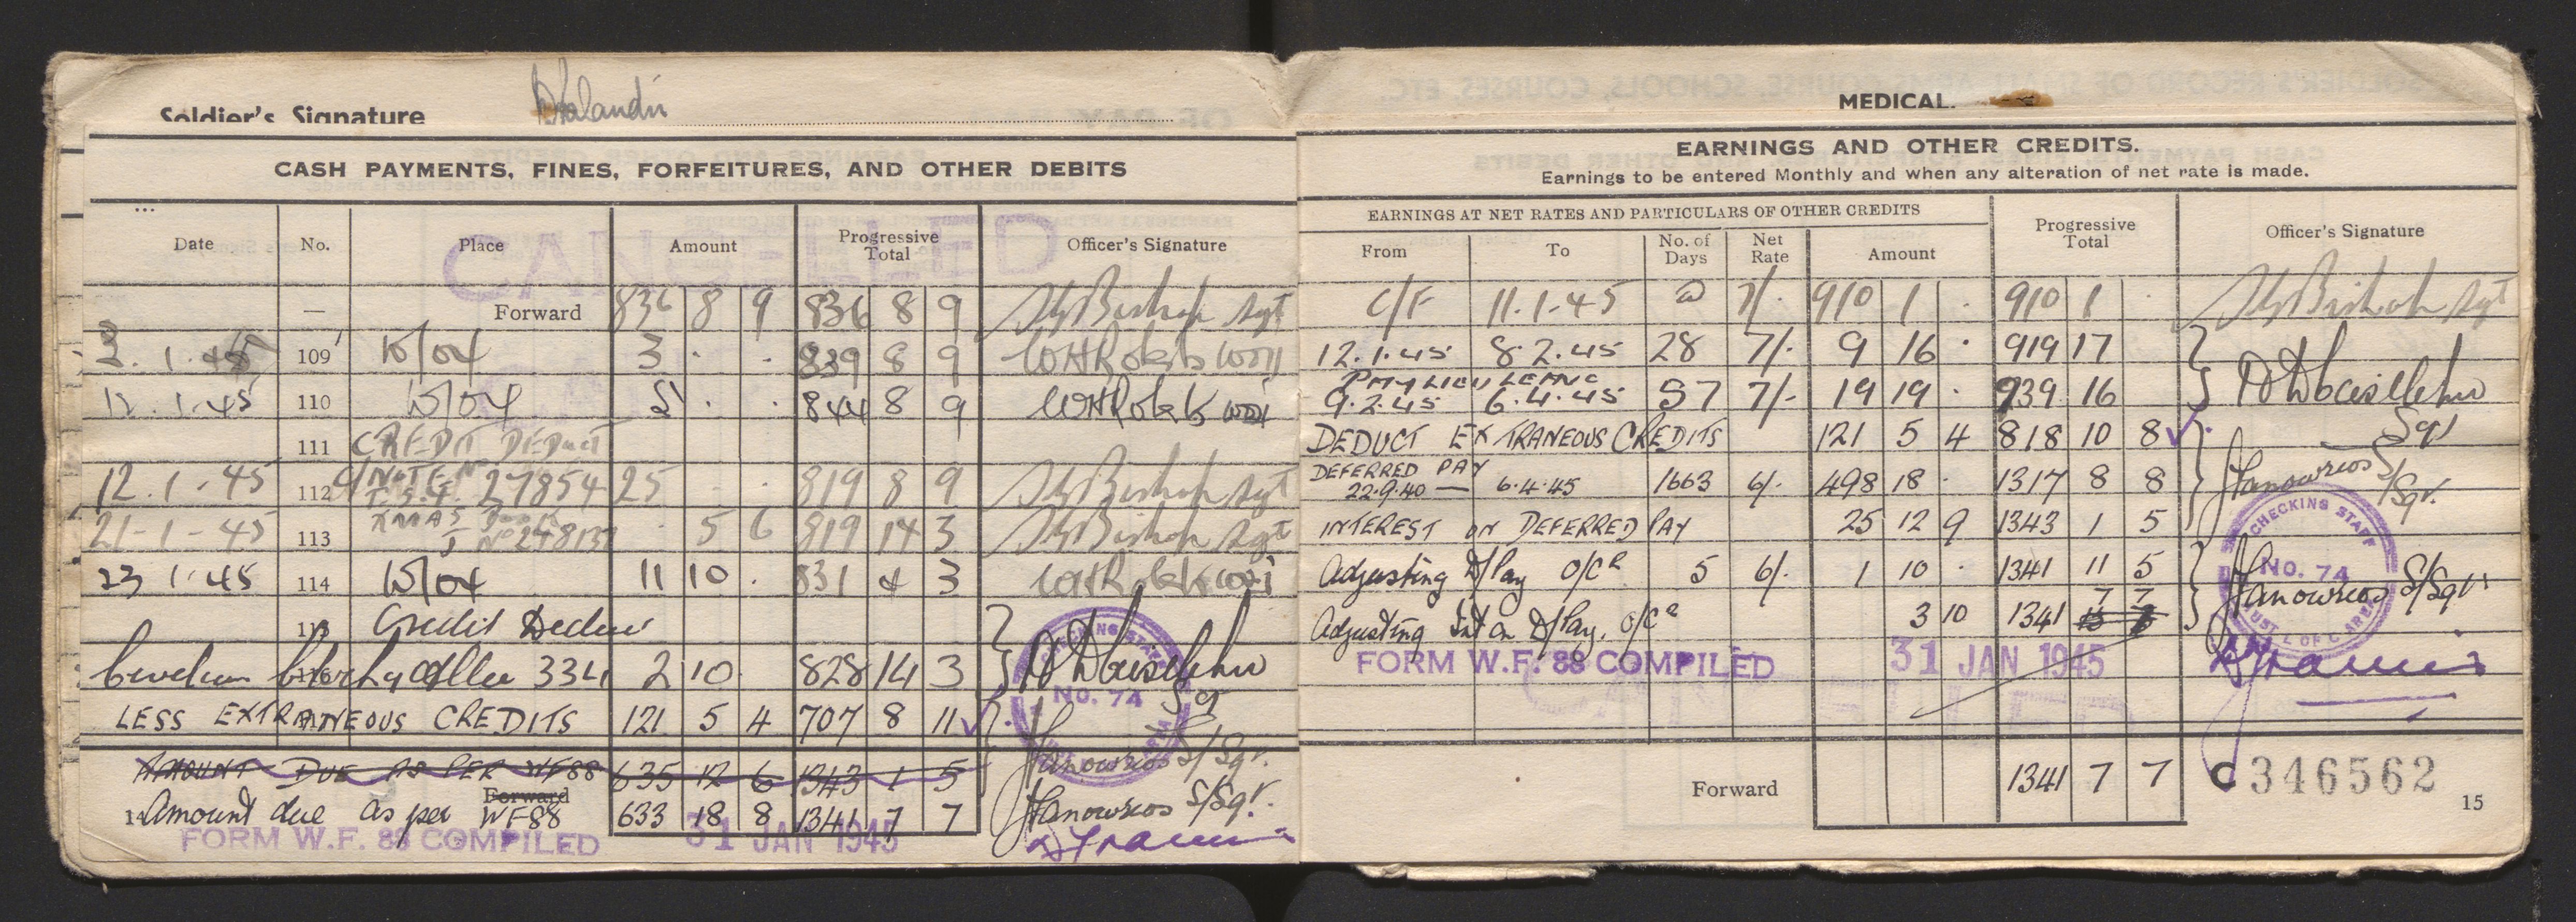 Soldier's Signature
CASH PAYMENTS, FINES, FORFEITURES, AND OTHER DEBITS
Date No. Place Amount Progressive Total Officer's Signature
CANCELLED
— Forward 836 8 9 836 8 9 Bishop Sgt
2. 1. 45 109 3 . . 839 8 9 WHRoberts WOII
12. 1. 45 110 5 . . 844 8 9 WHRoberts
111 CREDIT DEDUCT
12. 1. 45 112 NOTE No 27854 25 . . 819 8 9 Bishop Sgt
21-1-45 113 XMAS No 248137 . 5 6 819 14 3 Bishop Sgt
23 1. 45 114 11 10 . 831 4 3 WHRoberts
115 Credit Deduc
116 334 2 10 828 14 3
Sgt
LESS EXTRANEOUS CREDITS 121 5 4 707 8 11
AMOUNT DUE AS PER WF88 635 12 6 1343 1 5 S/Sgt.
Forward
14 Amount due as per WF88 633 18 8 1341 7 7 S/Sgt.
FORM W.F. 88 COMPILED 31 JAN 1945
CHECKING STAFF
NO. 74
MEDICAL.
EARNINGS AND OTHER CREDITS.
Earnings to be entered Monthly and when any alteration of net rate is made.
EARNINGS AT NET RATES AND PARTICULARS OF OTHER CREDITS Progressive Total Officer's Signature
From To No. of Days Net Rate Amount
C/F 11.1.45 @ 7/. 910 1 . 910 1 . Bishop Sgt
12.1.45 8.2.45 28 7/. 9 16 . 919 17
PMY LIEU LEAVE
9.2.45 6.4.45 57 7/- 19 19 . 939 16
DEDUCT EXTRANEOUS CREDITS 121 5 4 818 10 8 Sgt
DEFERRED PAY
22.9.40 — 6.4.45 1663 6/. 498 18 . 1317 8 8 S/Sgt.
INTEREST ON DEFERRED PAY 25 12 9 1343 1 5
Adjusting D/Pay O/Cr 5 6/. 1 10 . 1341 11 5 S/Sgt.
Adjusting Int on D/Pay. O/Cr 3 10 1341 7 7
CHECKING STAFF
NO. 74
AUST L OF C AREA
FORM W.F. 88 COMPILED 31 JAN 1945
Forward 1341 7 7 C346562
15